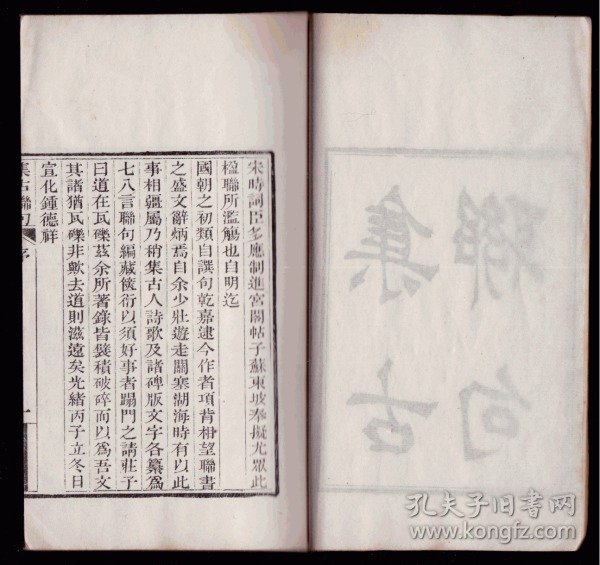 宋時詞臣多應制進宮閣帖子蘇東坡奉擬尤眾此
楹聯所濫觴也自明迄
國朝之初類自譔句乾嘉逮今作者項背相望聯書
之盛文辭炳焉自余少壯遊走關塞湖海時有以此
事相疆屬乃稍集古人詩歌及諸碑版文字各纂為
七八言聯句編藏篋衍以須好事者蹋門之請莊子
曰道在瓦礫茲余所著錄皆襞積破碎而以為吾文
其諸猶瓦礫非歟去道則滋遠矣光緒丙子立冬日
宣化鍾德祥
集古聯句
序
一
集古
聯句
孔夫子旧书网
www.kongfz.com